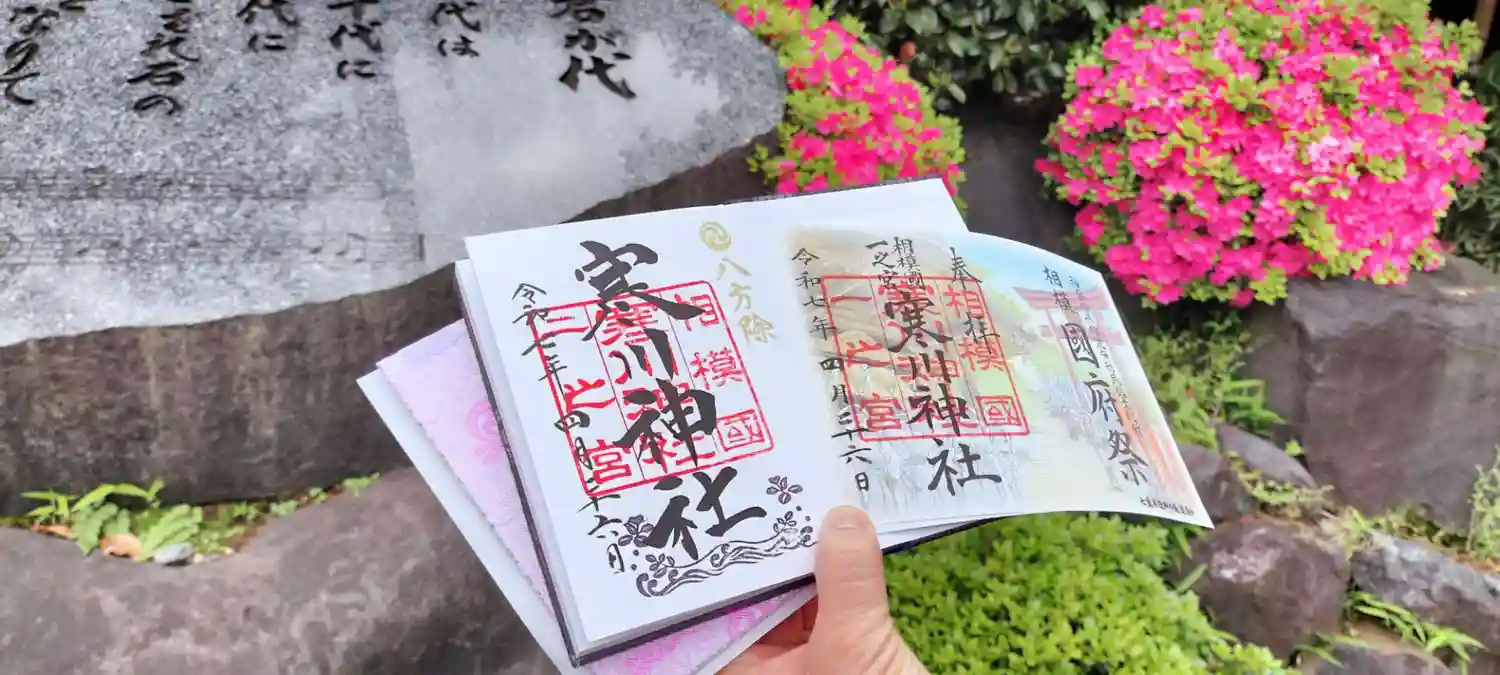 君が代
代は
千代に
代に
ざれ石の
と
なりて
八方除
寒川神社
令和七年四月二十六日
相模國
寒川神社
一之宮
相模
國府祭
奉拝
相模國
一之宮
寒川神社
令和七年四月二十六日
相模國
寒川神社
一之宮